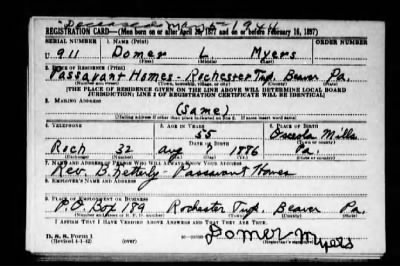 Deceased May 5 1944
REGISTRATION CARD—(Men born on or after April 28, 1877 and on or before February 16, 1897)
SERIAL NUMBER 1. NAME (Print) ORDER NUMBER
U 911 Domer L. Myers
(First) (Middle) (Last)
2. PLACE OF RESIDENCE (Print)
Passavant Homes - Rochester Twp. Beaver Pa.
(Number and street) (Town, township, village, or city) (County) (State)
[THE PLACE OF RESIDENCE GIVEN ON THE LINE ABOVE WILL DETERMINE LOCAL BOARD
JURISDICTION; LINE 2 OF REGISTRATION CERTIFICATE WILL BE IDENTICAL]
3. MAILING ADDRESS
(Same)
[Mailing address if other than place indicated on line 2. If same insert word same]
4. TELEPHONE 5. AGE IN YEARS 6. PLACE OF BIRTH
55 Osceola Mills
DATE OF BIRTH (Town or county)
Roch 32 Aug 1886 Pa.
(Exchange) (Number) (Mo.) (Day) (Yr.) (State or country)
7. NAME AND ADDRESS OF PERSON WHO WILL ALWAYS KNOW YOUR ADDRESS
Rev. B. Hetterly - Passavant Homes
8. EMPLOYER'S NAME AND ADDRESS
9. PLACE OF EMPLOYMENT OR BUSINESS
P.O. Box 189 Rochester Twp. Beaver Pa.
(Number and street or R. F. D. number) (Town) (County) (State)
I AFFIRM THAT I HAVE VERIFIED ABOVE ANSWERS AND THAT THEY ARE TRUE.
D. S. S. Form 1
(Revised 4-1-42) (over) Domer Myers